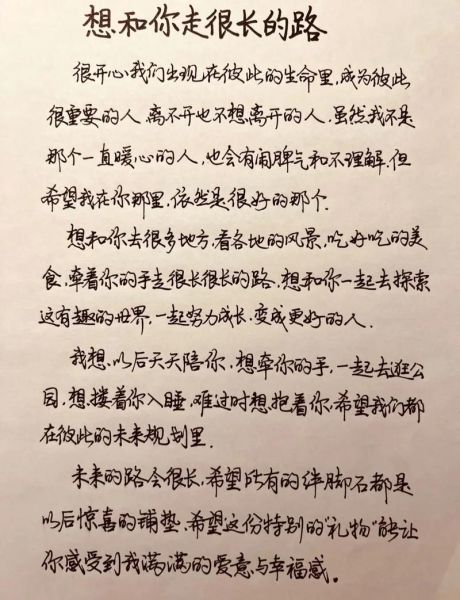 想和你走很长的路
很开心我们出现在彼此的生命里,成为彼此
很重要的人,离不开也不想离开的人.虽然我不是
那个一直暖心的人,也会有闹脾气和不理解.但
希望我在你那里,依然是很好的那个.
想和你去很多地方,看各地的风景,吃好吃的美
食,牵着你的手走很长很长的路,想和你一起去探索
这有趣的世界,一起努力成长.变成更好的人.
我想,以后天天陪你,想牵你的手,一起去逛公
园.想搂着你入睡,难过时想抱着你,希望我们都
在彼此的未来规划里.
未来的路会很长,希望所有的绊脚石都是
以后惊喜的铺垫.希望这份特别的"礼物"能让
你感受到我满满的爱意与幸福感。